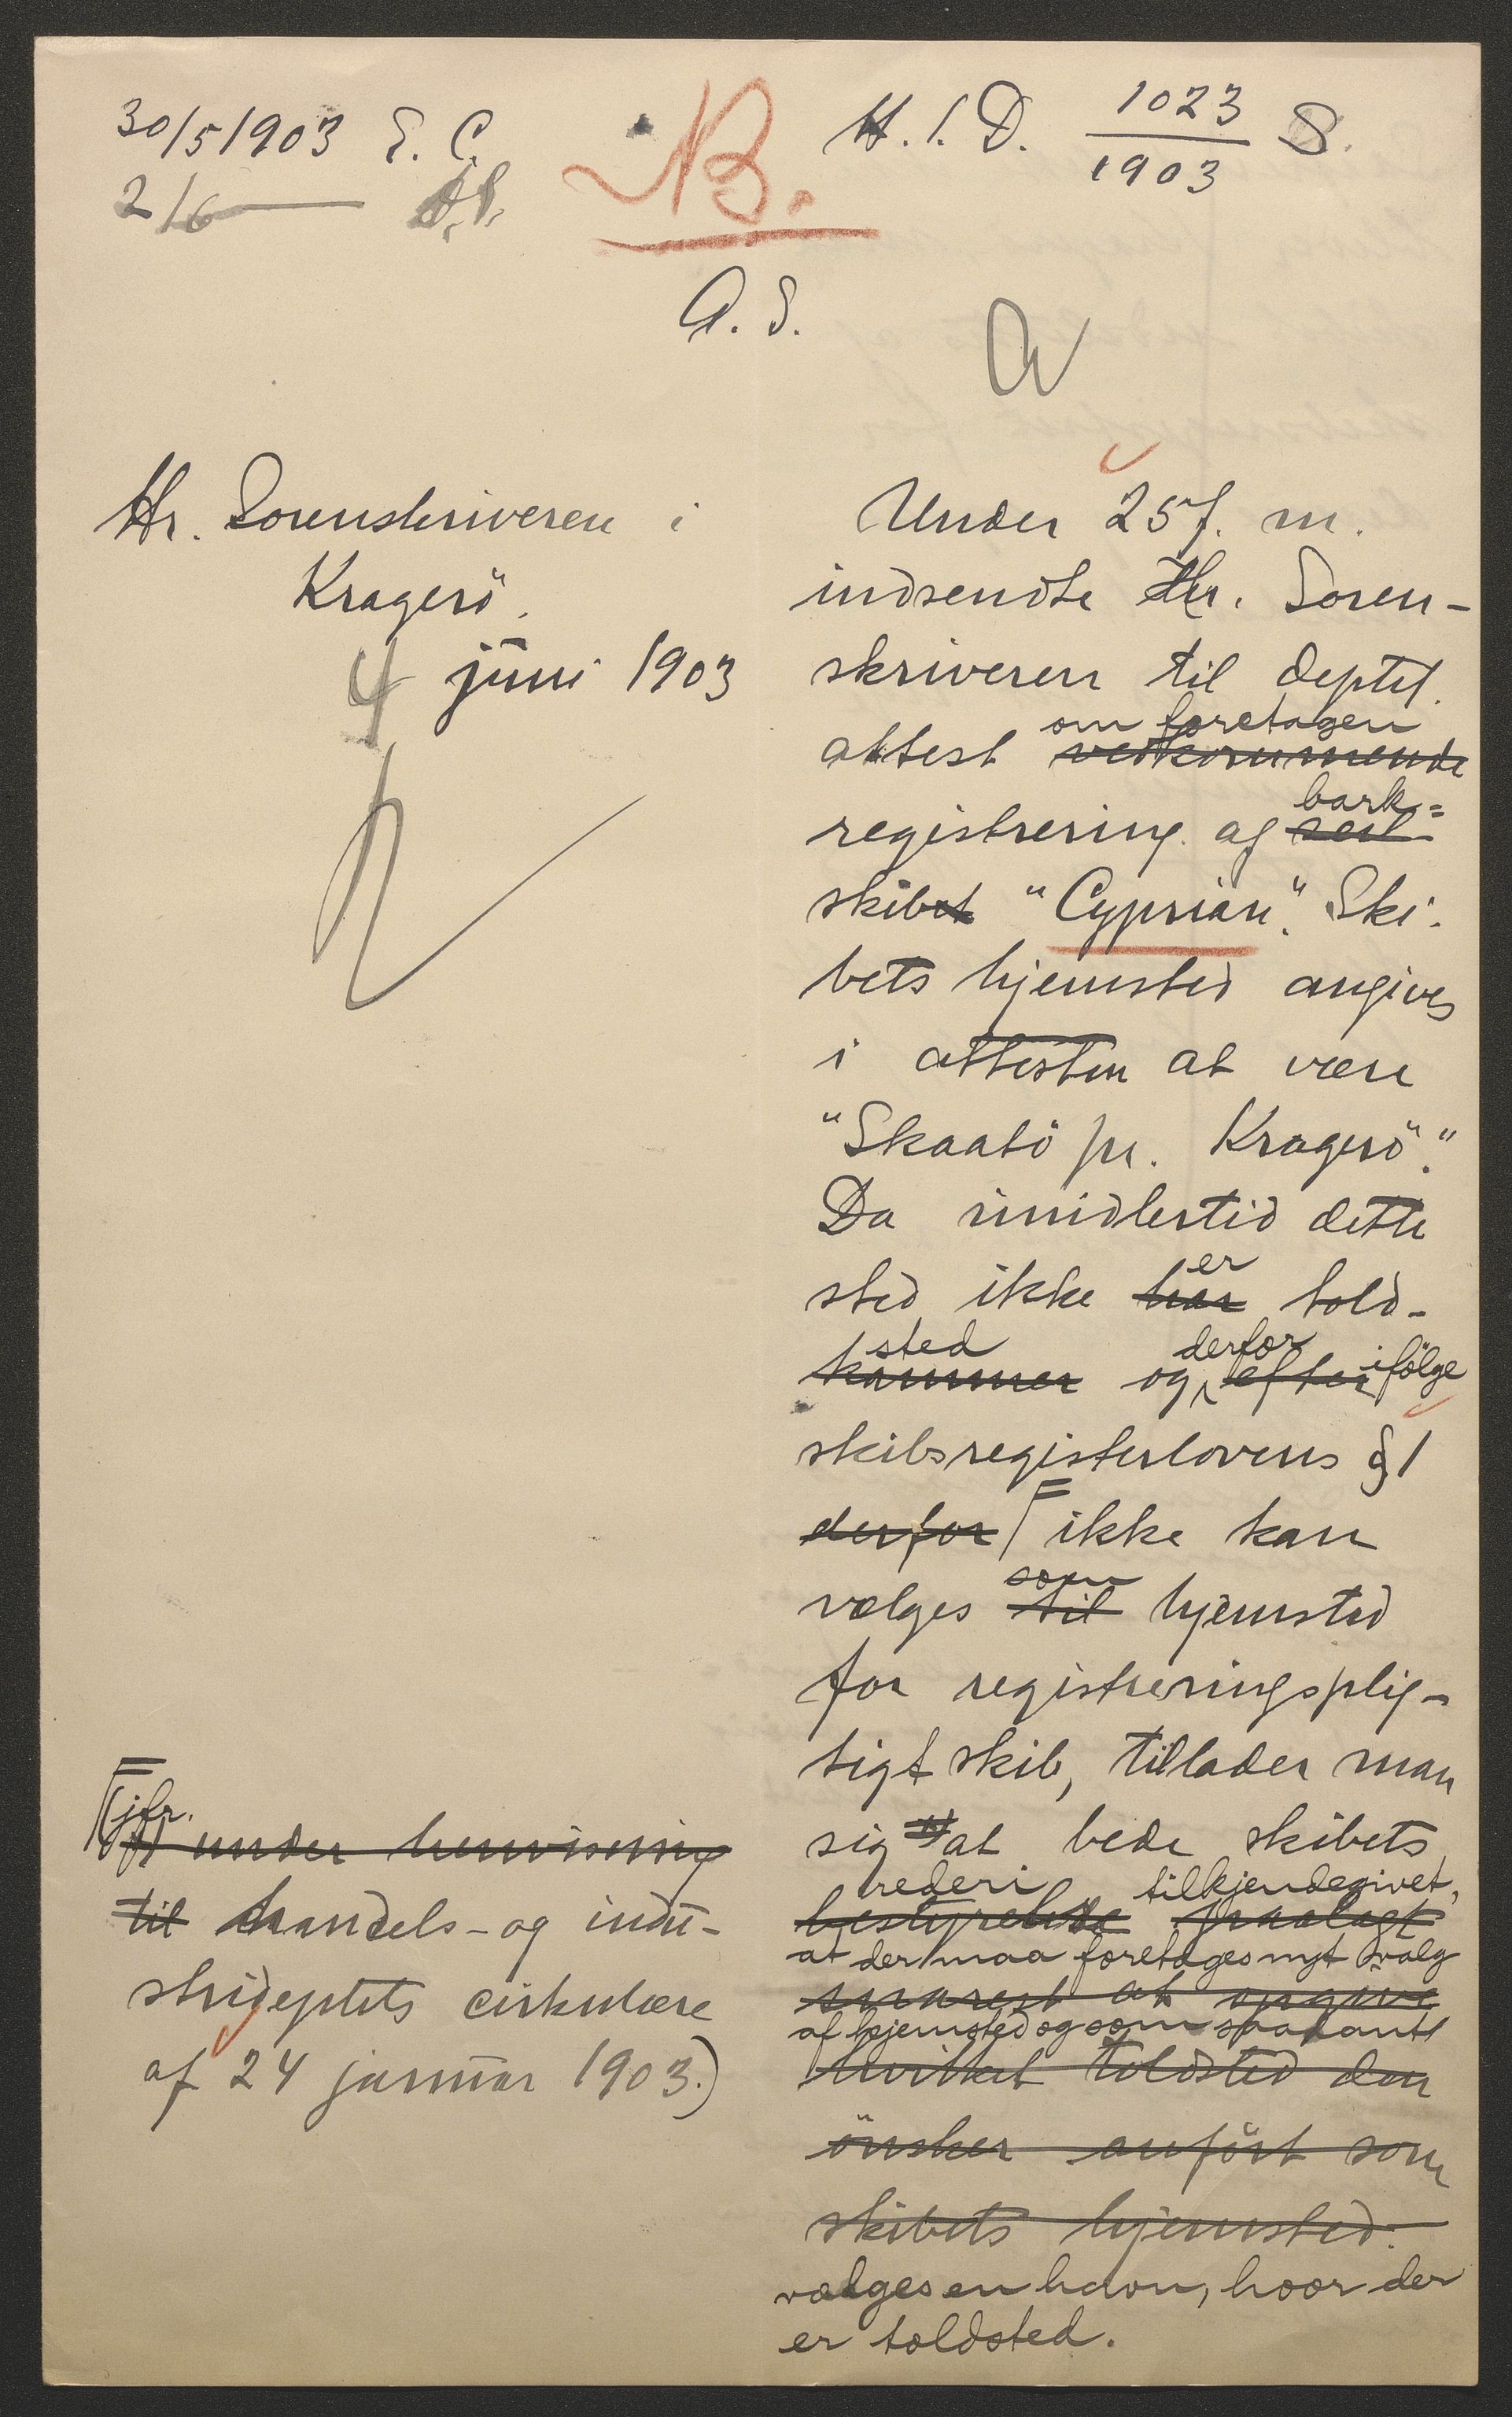 30/5 1903 E. C.
2/6
NB.
H. I. D. 1023/1903 S.
A. S.
Hr. Sorenskriveren i
Kragerö.
4 juni 1903
Under 25 f. m.
indsendte Hr. Soren-
skriveren til deptet.
om foretagen
attest vedkommende
bark-
registrering af seil-
skibet "Cyprian". Ski-
bets hjemsted angives
i attesten at være
"Skaatö pr. Kragerö".
Da imidlertid dette
er
sted ikke har told-
sted derfor ifölge
kammer og efter
skibsregisterlovens § 1
derfor ikke kan
som
vælges til hjemsted
for registreringsplig-
tigt skib, tillader man
sig at bede skibets
rederi tilkjendegivet,
bestyrelse paalagt
at der maa foretages nyt valg
snarest at opgive
af hjemsted og som saadant
hvilket toldsted den
önsker anfört som
skibets hjemsted.
vælges en havn, hvor der
er toldsted.
(jfr.
under henvisning
til handels- og indu-
strideptets cirkulære
af 24 januar 1903.)